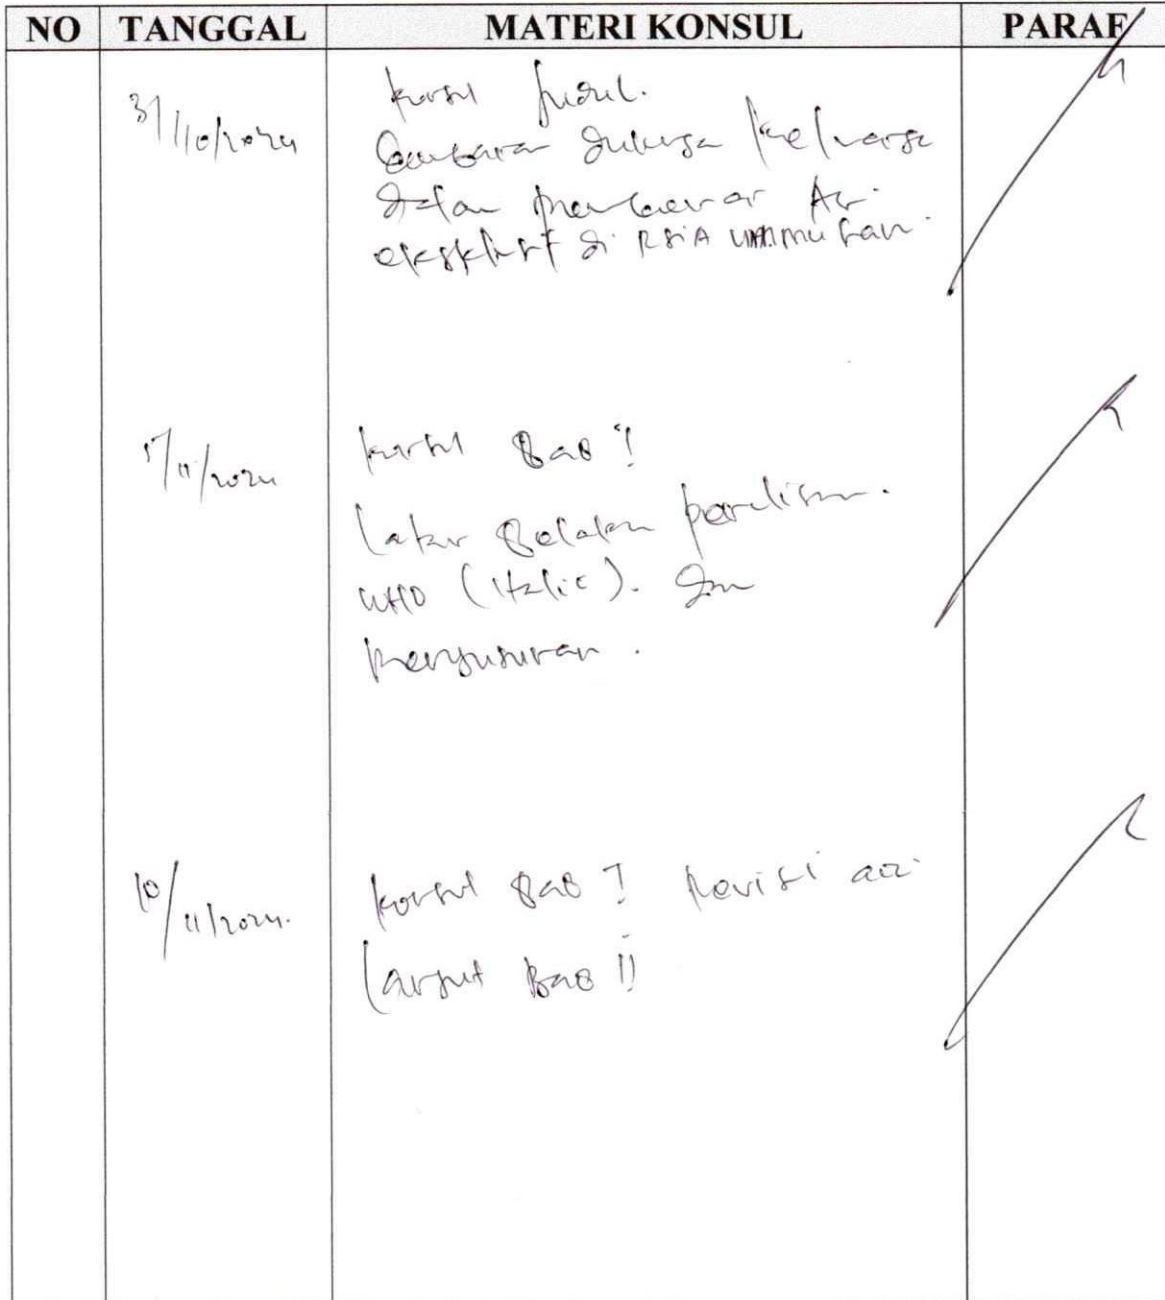 NO TANGGAL MATERI KONSUL PARAF
31/10/2024 konsul judul.
Gambaran dukungan keluarga
dalam
eksklusif di RSIA
5/11/2024 konsul Bab I
Latar Belakang penulisan.
WHO (italic). dan
penyusunan.
10/11/2024. konsul Bab I Revisi acc.
Lanjut Bab II